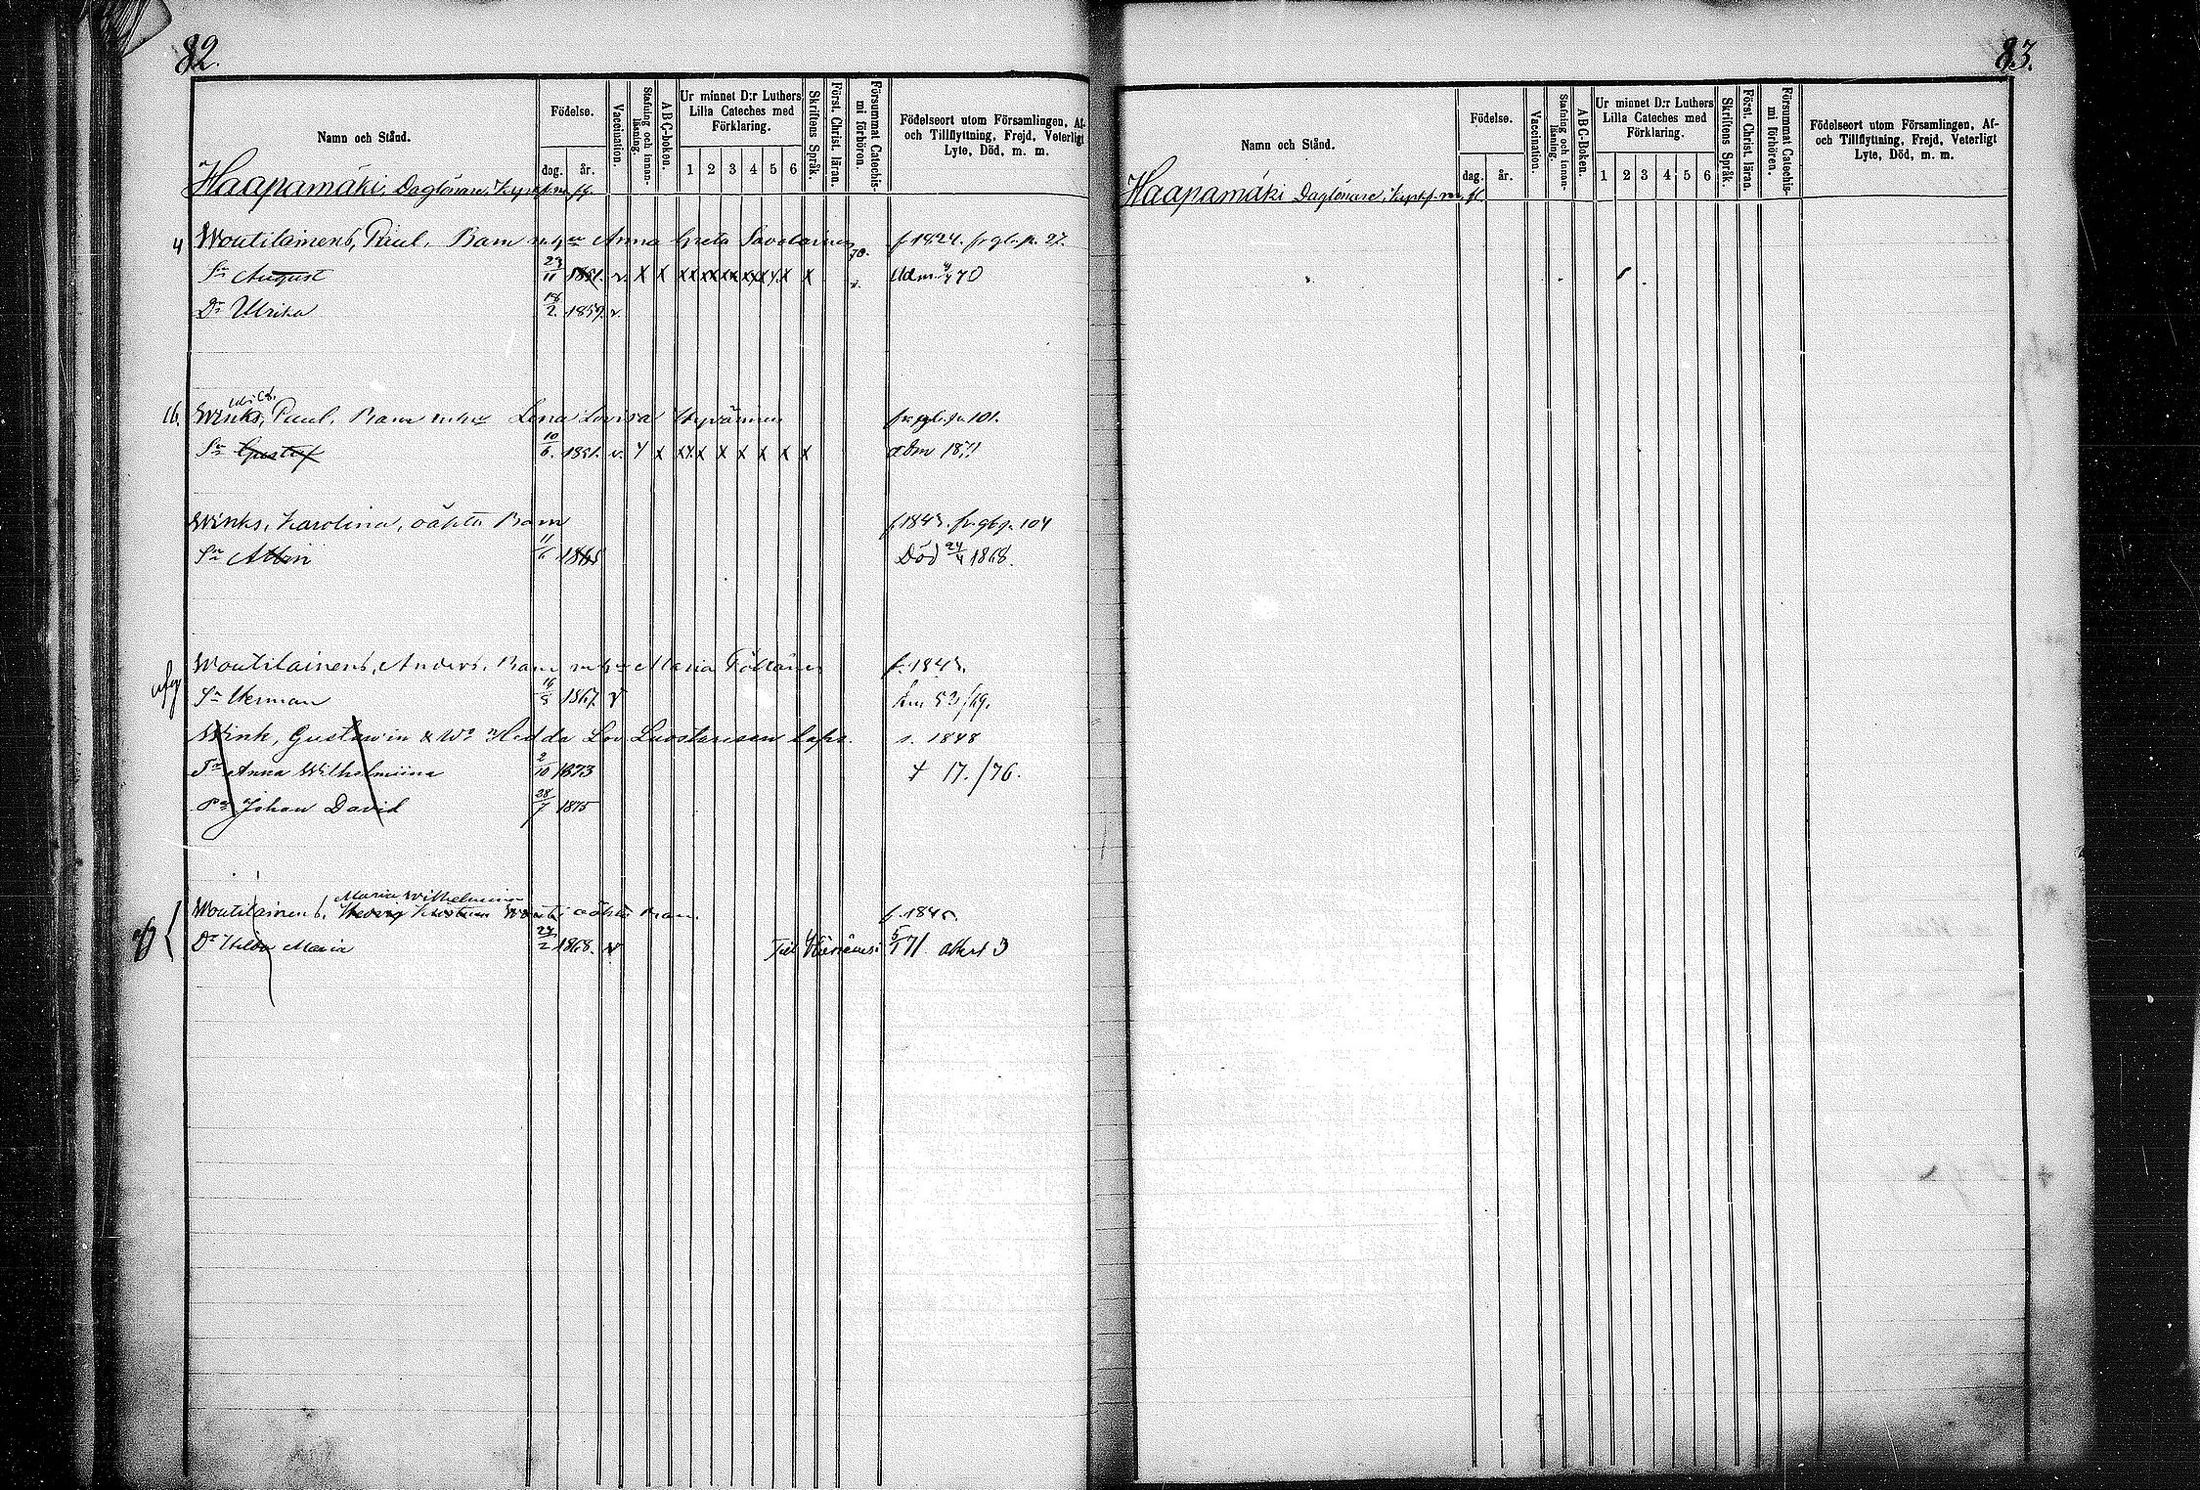 82.
Namn och Stånd.
Födelse.
dag. år.
Vaccination.
Stafning och innan-läsning.
ABC-boken.
Ur minnet D:r Luthers Lilla Cateches med Förklaring.
1 2 3 4 5 6
Skriftens Språk.
Först. Christ. läran.
Försummat Catechis-mi förhören.
Födelseort utom Församlingen, Af- och Tillflyttning, Frejd, Veterligt Lyte, Död, m. m.
Haapamäki, Daglönare,
4 Woutilainens, Paul, Barn m. h:u Anna Greta Savolainen f. 1824. fr. gb. p. 27.
S:n August 23/11 1851. v. x x xx xx xx xx x x x Utdm 70
D:r Ulrika 18/2. 1859. v.
16. Winks, Paul, Barn m. h:u Lena Lovisa Hyvärinen fr. gb. p. 101.
S:n Gustaf 10/6. 1851. v. x x x x x x x x x adm 1871
Winks, Karolina, oäkta Barn f. 1843. fr. gb p. 104
S:n Albin 11/6 1865 Död 24/4 1868.
Woutilainens, Anders, Barn m. h:u Maria f. 1843.
S:n Herman 16/5 1867. v 53/69.
Wink, Gustaw in & W:o Hedda Lov. Luostarisen laps. s. 1848
T:r Anna Wilhelmiina 2/10 1873 † 17./76.
P:a Johan David 28/7 1875
Maria Wilhelmina
Woutilainens, oäkta Barn. f. 1845.
D:r Hilda Maria 24/2 1868. v Till 5/1 71. attest 3
83.
Namn och Stånd.
Födelse.
dag. år.
Vaccination.
Stafning och innan-läsning.
ABC-Boken.
Ur minnet D:r Luthers Lilla Cateches med Förklaring.
1 2 3 4 5 6
Skriftens Språk.
Först. Christ. läran.
Försummat Catechis-mi förhören.
Födelseort utom Församlingen, Af- och Tillflyttning, Frejd, Veterligt Lyte, Död, m. m.
Haapamäki Daglönare,